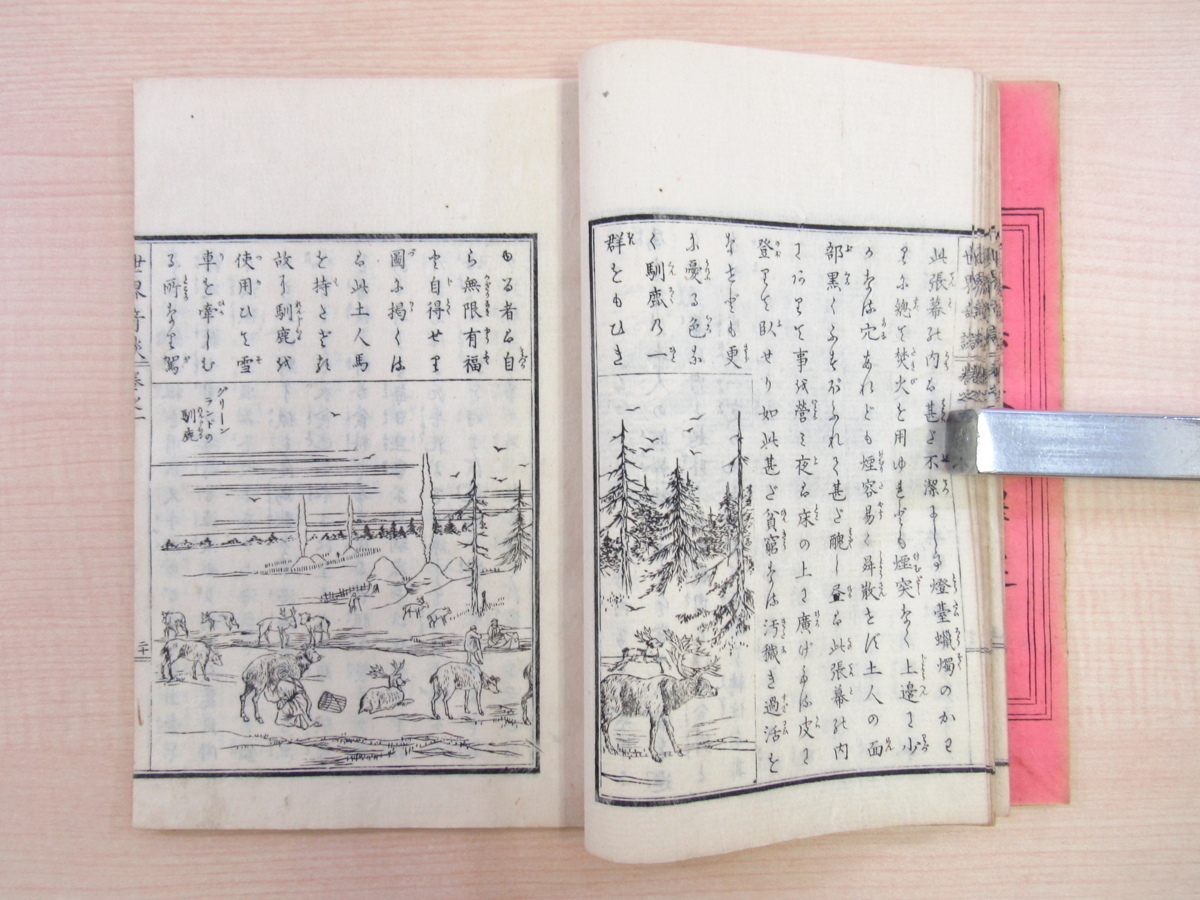 此張幕の内は甚だ不潔にして燈臺蠟燭のかはりに總て焚火を用ゆれども煙突なく上邊に少
の穴あれども煙容易く舜散せず土人の面
部黒くふすぶれて甚だ醜し晝は此張幕の内
にありて事を營み夜は床の上に廣げたる皮に
登りて臥せり如此甚だ貧窮なる汚穢き過活を
なせども更
に憂る色な
く馴鹿の一
群をもひき
ゐる者は自
ら無限有福
と自得せり
圖に掲くは
此土人馬
を持たざれ
故に馴鹿を
使用ひて雪
車を牽しむ
る所なり駕
グリーン
ランドの
馴鹿
世界奇談 巻之一
二十